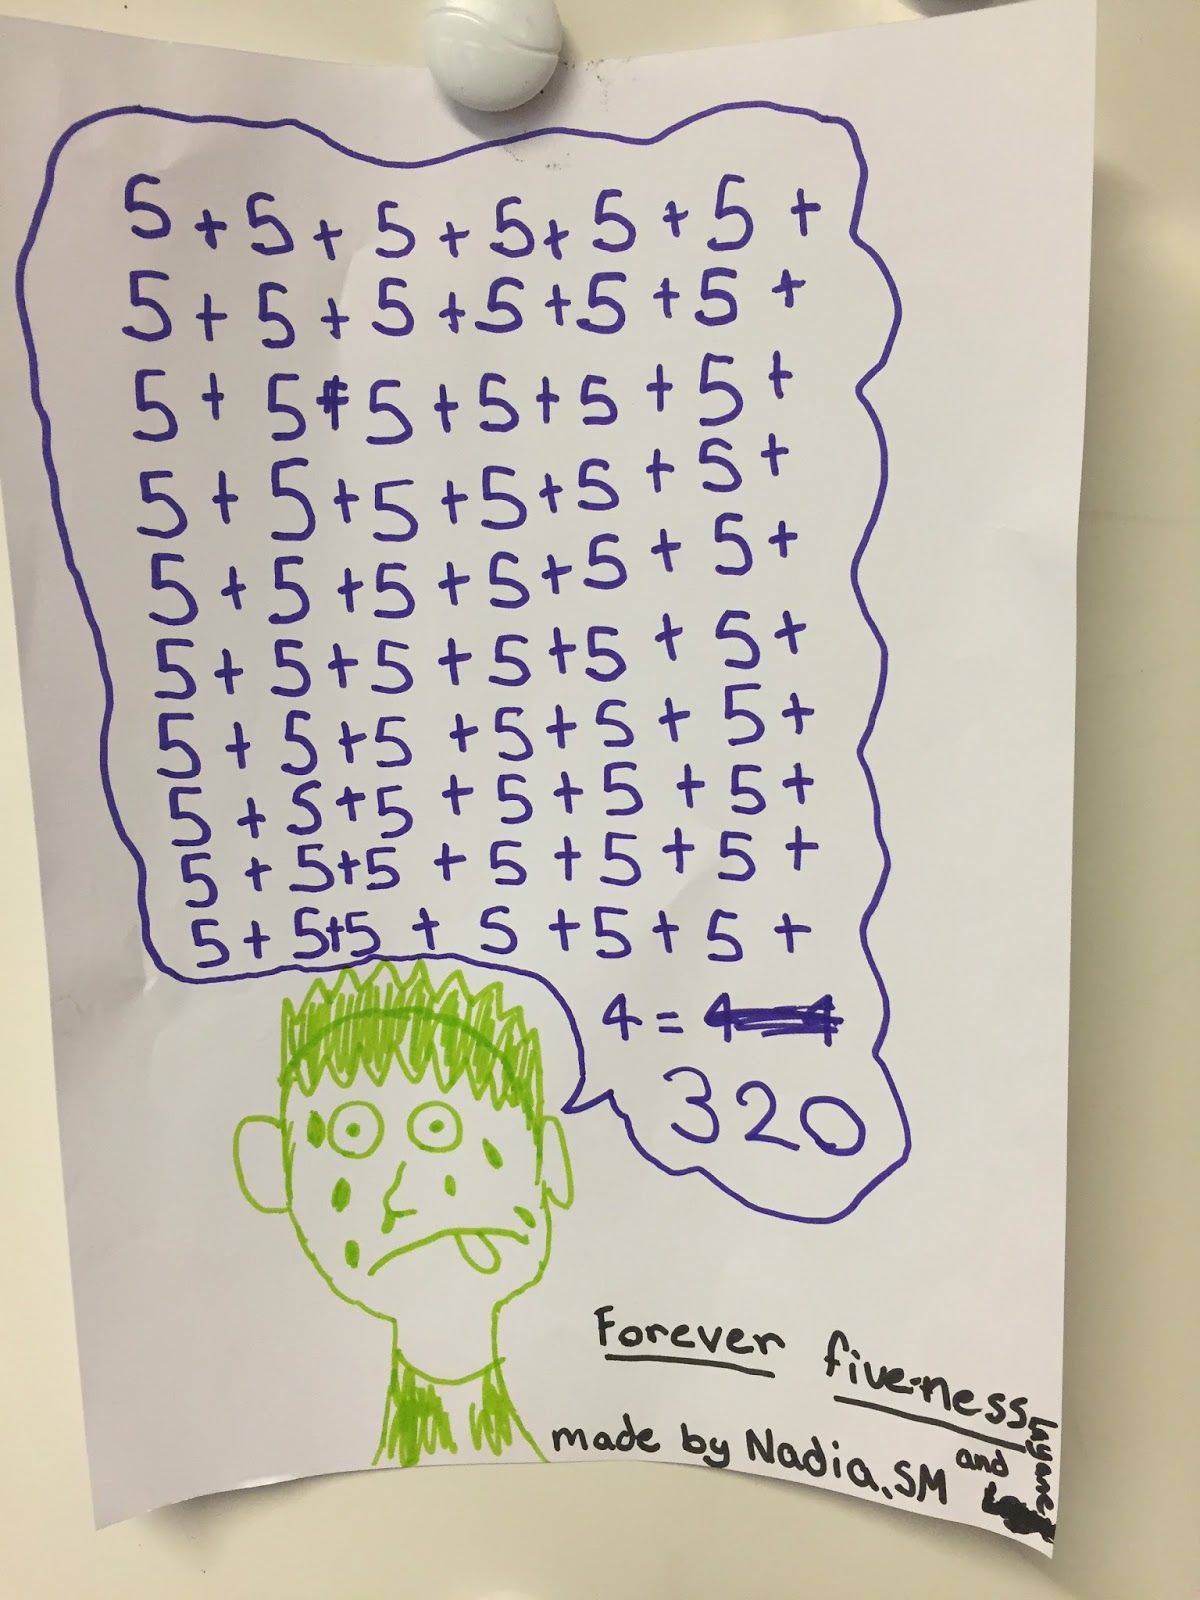 5 + 5 + 5 + 5 + 5 + 5 +
5 + 5 + 5 + 5 + 5 + 5 +
5 + 5 + 5 + 5 + 5 + 5 +
5 + 5 + 5 + 5 + 5 + 5 +
5 + 5 + 5 + 5 + 5 + 5 +
5 + 5 + 5 + 5 + 5 + 5 +
5 + 5 + 5 + 5 + 5 + 5 +
5 + 5 + 5 + 5 + 5 + 5 +
5 + 5 + 5 + 5 + 5 + 5 +
5 + 5 + 5 + 5 + 5 + 5 +
4 =
320
Forever five-ness
made by Nadia.SM and